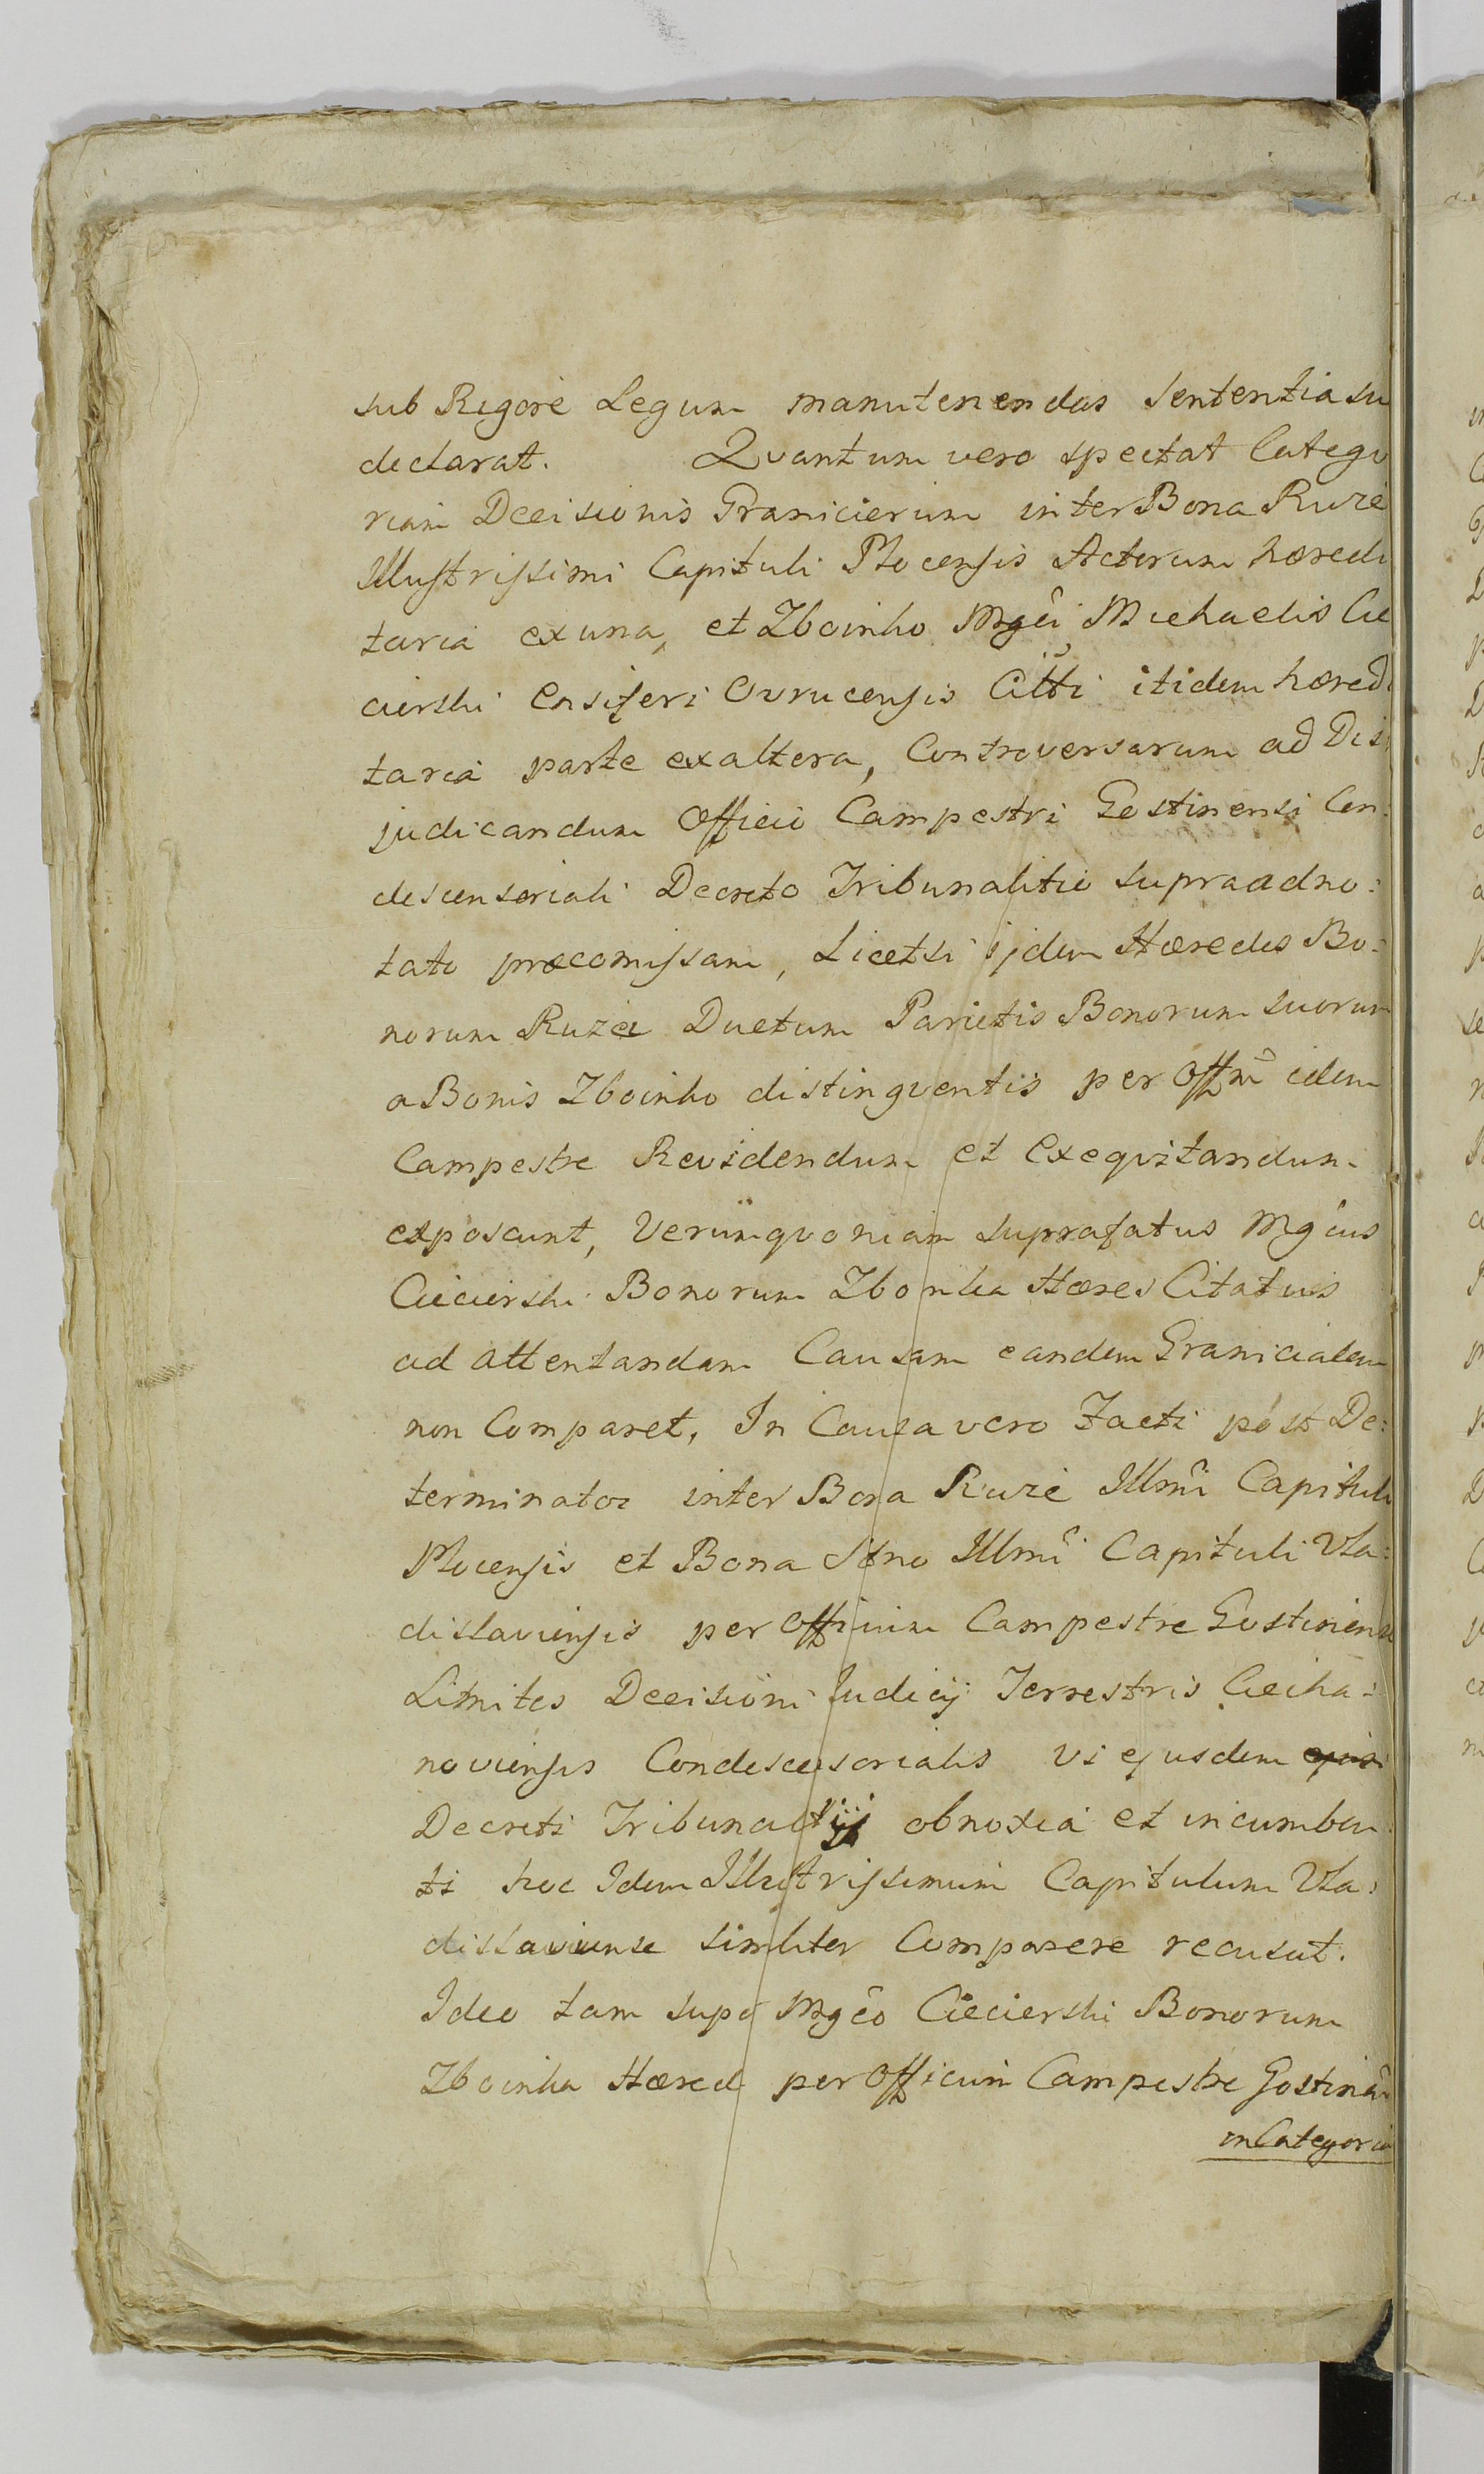 sub Rigore Legum manutenendas Sententia su
declarat. Qvantum vero spectat Catego
riam Decisionis Granicierum inter Bona Ruze
Illustrissimi Capituli Plocensis Actorum hæredi
taria ex una, et Zboinko Mgci Michaelis Cie
cierski Ensiferi Ovrucensis Citti itidem hæredi
taria parte ex altera, Controversarum ad Dis
judicandum Officio Campestri Gostinensi Con:
descensoriali Decreto Tribunalitio supraadno:
tato præcomissam, Licetsi ijdem Hæredes Bo:
norum Ruze Ductum Parietis Bonorum suorum
a Bonis Zboinko distingventis per Offm idem
Campestre Revidendum et Exeqvitandum
exposcunt, Verumqvoniam suprafatus Mgcus
Ciecierski Bonorum Zboinka Hæres Citatus
ad attentandam Causam eandem Granicialem
non Comparet, In Causa vero Facti post De:
terminatos inter Bona Ruze Illmi Capituli
Plocensis et Bona Illmi Capituli Vla:
dislaviensis per Officium Campestre Gostinense
Limites Decisioni Judicij Terrestris Ciecha:
noviensis Condescensorialis vi ejusdem
Decreti Tribunalitij obnoxia et incumben
ti hoc Idem Illustrissimum Capitulum Vla:
dislaviense similiter Comparere recusat.
Ideo tam supo Mgco Ciecierski Bonorum
Zboinka Hæred per Officium Campestre Gostinen
in Categoria